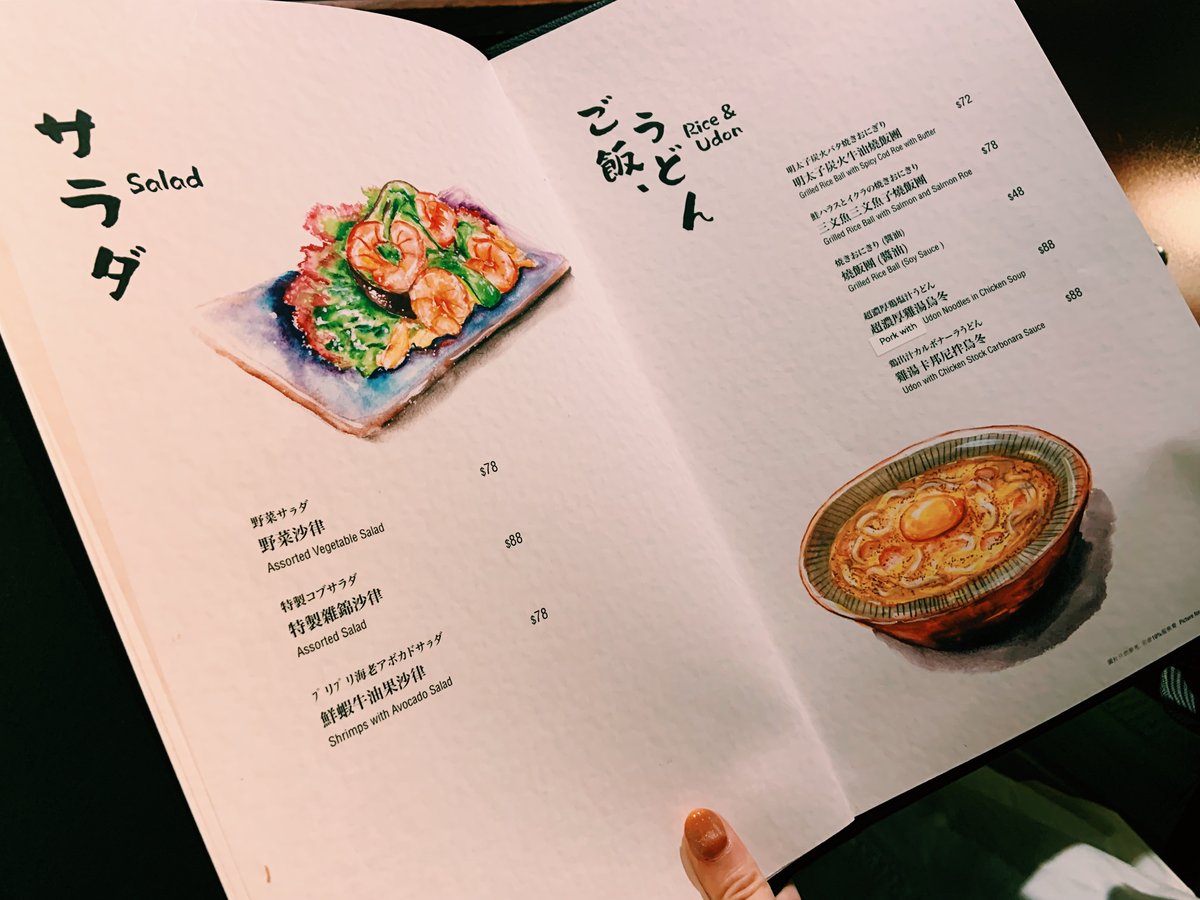 サラダ
Salad
$78
野菜サラダ
野菜沙律
Assorted Vegetable Salad
$88
特製コブサラダ
特製雜錦沙律
Assorted Salad
$78
プリプリ海老アボカドサラダ
鮮蝦牛油果沙律
Shrimps with Avocado Salad
ご飯、
うどん
Rice &
Udon
$72
明太子炭火バタ焼きおにぎり
明太子炭火牛油燒飯團
Grilled Rice Ball with Spicy Cod Roe with Butter
$78
鮭ハラスとイクラの焼きおにぎり
三文魚三文魚子燒飯團
Grilled Rice Ball with Salmon and Salmon Roe
$48
焼きおにぎり (醤油)
燒飯團 (醬油)
Grilled Rice Ball (Soy Sauce )
$88
超濃厚鶏塩汁うどん
超濃厚雞湯烏冬
Pork with Udon Noodles in Chicken Soup
$88
鶏出汁カルボナーラうどん
雞湯卡邦尼拌烏冬
Udon with Chicken Stock Carbonara Sauce